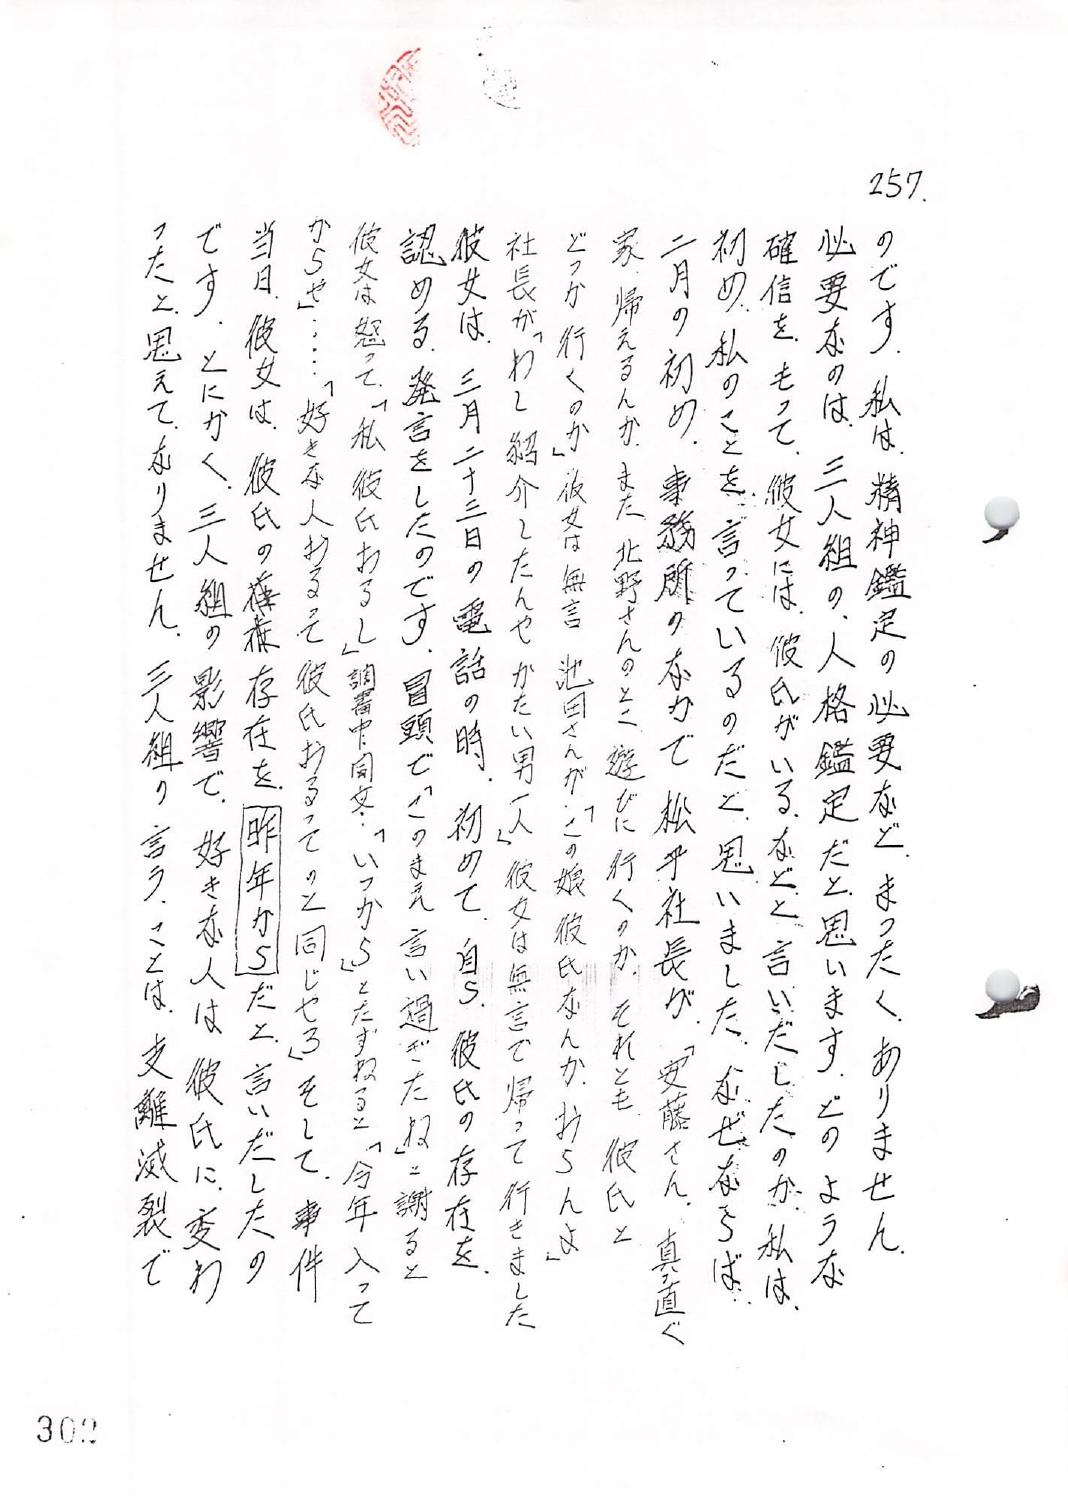 257.
のです.私は.精神鑑定の必要など.まったく.ありません.
必要なのは.三人組の.人格鑑定だと.思います.どのような
確信を.もって.彼女には.彼氏がいる.などと言いだしたのか.私は.
初め.私のことを.言っているのだと.思いました.なぜならば.
二月の初め.事務所のなかで 松平社長が.「安藤さん.真っ直ぐ
家.帰えるんか.また 北野さんのとこ 遊びに 行くのか.それとも 彼氏と
どっか 行くのか」彼女は無言 池田さんが.「この娘 彼氏なんか.おらんよ」
社長が「わし 紹介したんや かたい男一人」彼女は無言で 帰って行きました
彼女は.三月二十三日の電話の時.初めて.自ら.彼氏の存在を.
認める.発言をしたのです.冒頭で「このまえ 言い過ぎたね」と謝ると
彼女は怒って.「私 彼氏おるし」調書中.同文.「いつから」とたずねると「今年入って
からや」‥‥「好きな人おるって 彼氏おるってのと同じやろ」そして.事件
当日.彼女は.彼氏の 存在を.昨年からだと.言いだしたの
です.とにかく.三人組の影響で.好きな人は 彼氏に.変わ
ったと.思えて.なりません.三人組の 言う.ことは.支離滅裂で
302